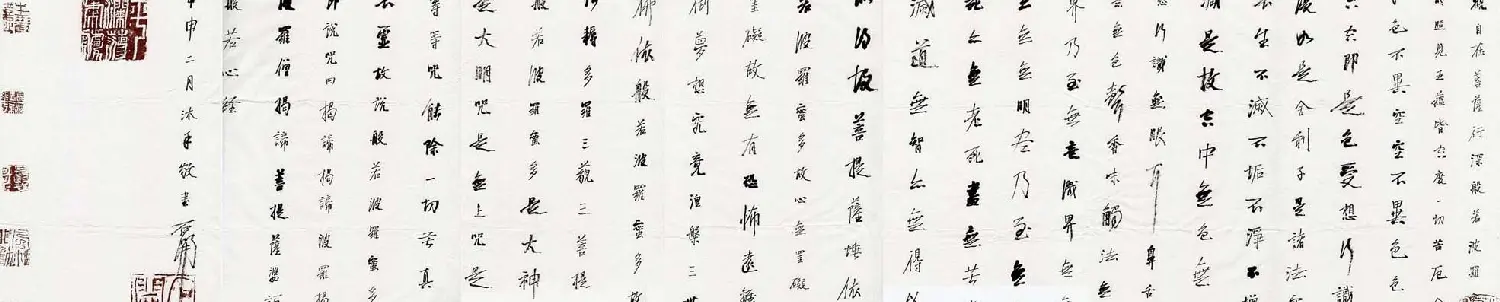 觀自在菩薩行深般若波羅
時照見五蘊皆空度一切苦厄
色不異空空不異色色
空空即是色受想行識
復如是舍利子是諸法
不生不滅不垢不淨不增
減是故空中無色無
想行識無眼耳鼻舌
無色聲香味觸法無
界乃至無意識界無
無無明盡乃至無
死亦無老死盡無苦
滅道無智亦無得以
所得故菩提薩埵依
若波羅蜜多故心無罣礙
罣礙故無有恐怖遠離
倒夢想究竟涅槃三世
佛依般若波羅蜜多故
得耨多羅三藐三菩提
般若波羅蜜多是大神
是大明咒是無上咒是
等等咒能除一切苦真
不虛故說般若波羅蜜多
即說咒曰揭諦揭諦波羅揭
波羅僧揭諦菩提薩婆訶
般若心經
甲申二月沐手敬書